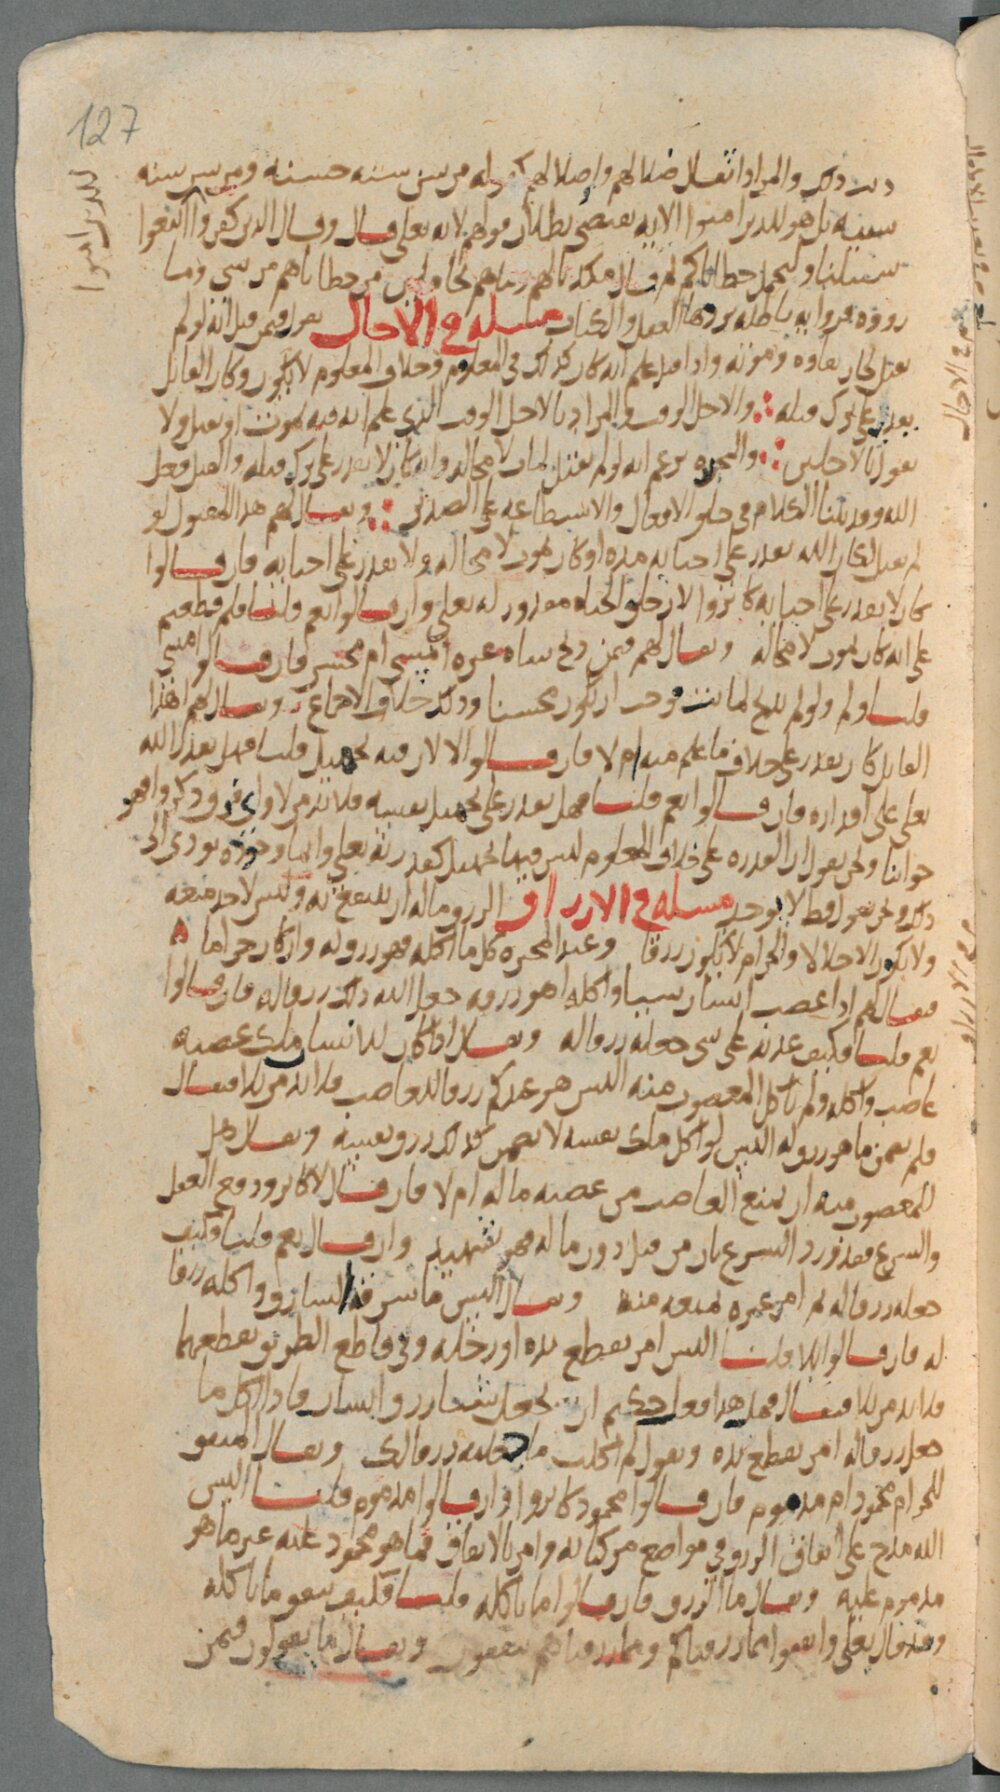 127
للذين امنوا
ذلك والمراد اثقال ضلالهم واضلالهم كقوله من سن سنه حسنه ومن سن سنه
سيئه بل هو للذين امنوا الايه يقتضي بطلان قولهم لانه تعلى قال وقال الذين كفروا اتبعوا
سبيلنا ولنحمل خطاياكم ثم قال هكذا وما هم بحاملين من خطاياهم من شي وما
رووه فروايه باطله يردها العقل والكتاب مسله في الاجال
يقتل لجاز بقاوه وموته واذا قيل علم انه كان كذلك في المعلوم وخلاف المعلوم لا يكون وكان القاتل
يقدر على ترك قتله والاجل الوقت والمراد بالاجل الوقت الذي علم انه فيه يموت او يقتل ولا
نقول بالاجلين والمجبره تزعم انه لو لم يقتل لمات لا محاله وانه كان لا يقدر على ترك قتله والقتل فعل
الله وقد بينا الكلام في خلق الافعال والاستطاعه على الضدين ويقال لهم هذا المقتول لو
لم يقتل لكان الله يقدر على احيايه مده او كان يموت لا محاله ولا يقدر على احيايه فان قالوا
كان لا يقدر على احيايه كابروا لان خلق الحياه مقدور له تعلى وان قالوا نعم قلنا فلم قطعتم
على انه كان يموت لا محاله ويقال لهم فيمن ذبح شاه غيره امسي ام محسن فان قالوا مسي
قلنا ولم ولو لم يذبح لماتت فوجب ان يكون محسنا وذلك خلاف الاجماع ويقال لهم هذا
القاتل كان يقدر على خلاف ما علم منه ام لا فان قالوا لا لان فيه تجهيل قلنا فهل يقدر الله
تعلى على اقداره فان قالوا نعم قلنا فهل يقدر على تجهيل نفسه فلا بد من لا
جوابنا ونحن نقول ان القدره على خلاف المعلوم ليس فيها تجهيل كقدرته تعلى وانما وجوده يودي الى
ذلك ونحن نقول قط لا يوجد مسله في الارزاق الرزق ماله ان ينتفع به وليس لاحد منعه
ولا يكون الا حلالا والحرام لا يكون رزقا وعند المجبره كل ما اكله فهو رزق له وان كان حراما
فيقال لهم اذا غصب انسان شيئا واكله اهو رزقه جعل الله ذلك رزقا له فان قالوا
نعم قلنا فكيف عذبه على شي جعله رزقا له ويقال اذا كان للانسان ملك غصبه
غاصب واكله ولم ياكل المغصوب منه اليس هو عندكم رزقا للغاصب فلا بد من بلا فيقال
فلم يضمن ما هو رزق له اليس لو اكل ملك نفسه لا يضمن فكذلك رزق نفسه ويقال هل
للمغصوب منه ان يمنع الغاصب من غصبه ماله ام لا فان قال لا كابر ودفع العقل
والشرع فقد ورد الشرع بان من قتل دون ماله فهو شهيد وان قال نعم قلنا فكيف
جعله رزقا له ثم امر غيره بمنعه منه ويقال اليس ما سرقه السارق واكله رزقا
له فان قالوا بلا قلنا اليس امر بقطع يده او رجله وفي قاطع الطريق بقطعهما
فلا بد من بلا فيقال فهل هذا فعل حكيم ان يجعل شيئا رزق انسان فاذا اكل ما
جعل رزقا له امر بقطع يده ويقول لم اكلت ما جعلته رزقا لك ويقال المنفق
للحرام محمود ام مذموم فان قالوا محمود كابروا وان قالوا مذموم قلنا اليس
الله مدح على انفاق الرزق في مواضع من كتابه وامر بالانفاق فما هو محمود عليه غير ما هو
مذموم عليه ويقال ما الرزق فان قالوا ما ياكله قلنا فكيف ينفق ما ياكله
وقد قال تعلى وانفقوا مما رزقناكم ومما رزقناهم ينفقون ويقال ما يقولون فيمن